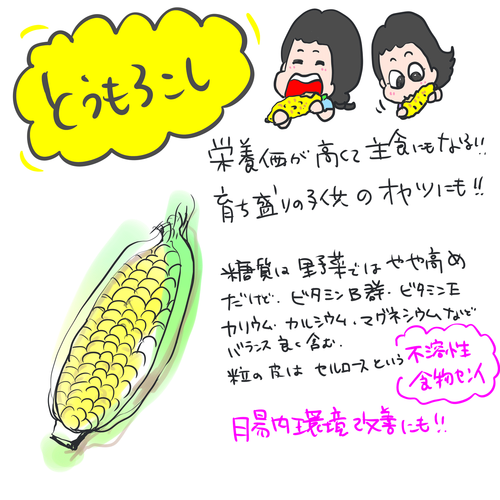 とうもろこし
栄養価が高くて主食にもなる!!
育ち盛りの子供のオヤツにも!!
糖質は野菜ではやや高め
だけど、ビタミンB群、ビタミンE
カリウム、カルシウム、マグネシウムなど
バランス良く含む。
粒の皮はセルロースという
不溶性
食物センイ
腸内環境改善にも!!